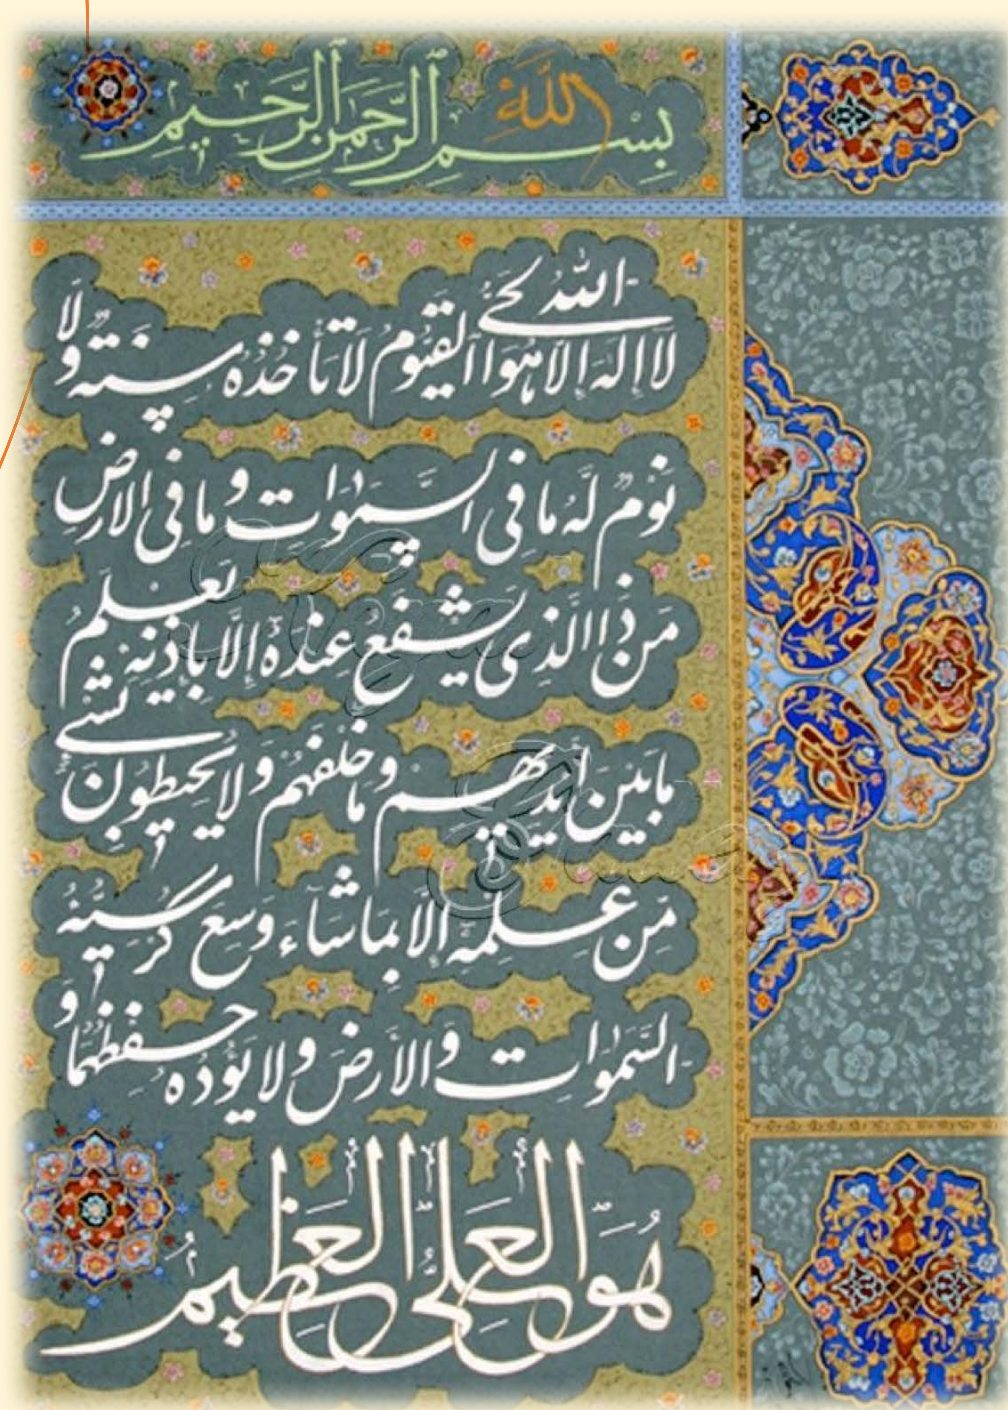 بِسْمِ اللَّهِ الرَّحْمنِ الرَّحيمِ
اللهُ لا اِلهَ اِلّا هُوَ الْحَیُّ الْقَیُّومُ لا تَأخُذُهُ سِنَةٌ وَلا
نَوْمٌ لَهُ ما فِی السَّموَاتِ وَ ما فِی الارضِ
مَن ذَا الَّذِی یَشْفَعُ عِنْدَهُ اِلَّا بِاِذْنِهِ یَعْلَمُ
ما بَیْنَ اَیْدیهِمْ وَ ما خَلْفَهُمْ وَ لا یُحیطُونَ بِشَیْ
ءٍ مِنْ عِلْمِهِ اِلّا بِمَا شَاءَ وَسِعَ کُرْسِیُّهُ
السَّمٰوَاتِ وَ الاَرْضَ وَ لا یَؤُدُهُ حِفْظُهُمَا وَ
هُوَ الْعَلِیُّ الْعَظیمُ